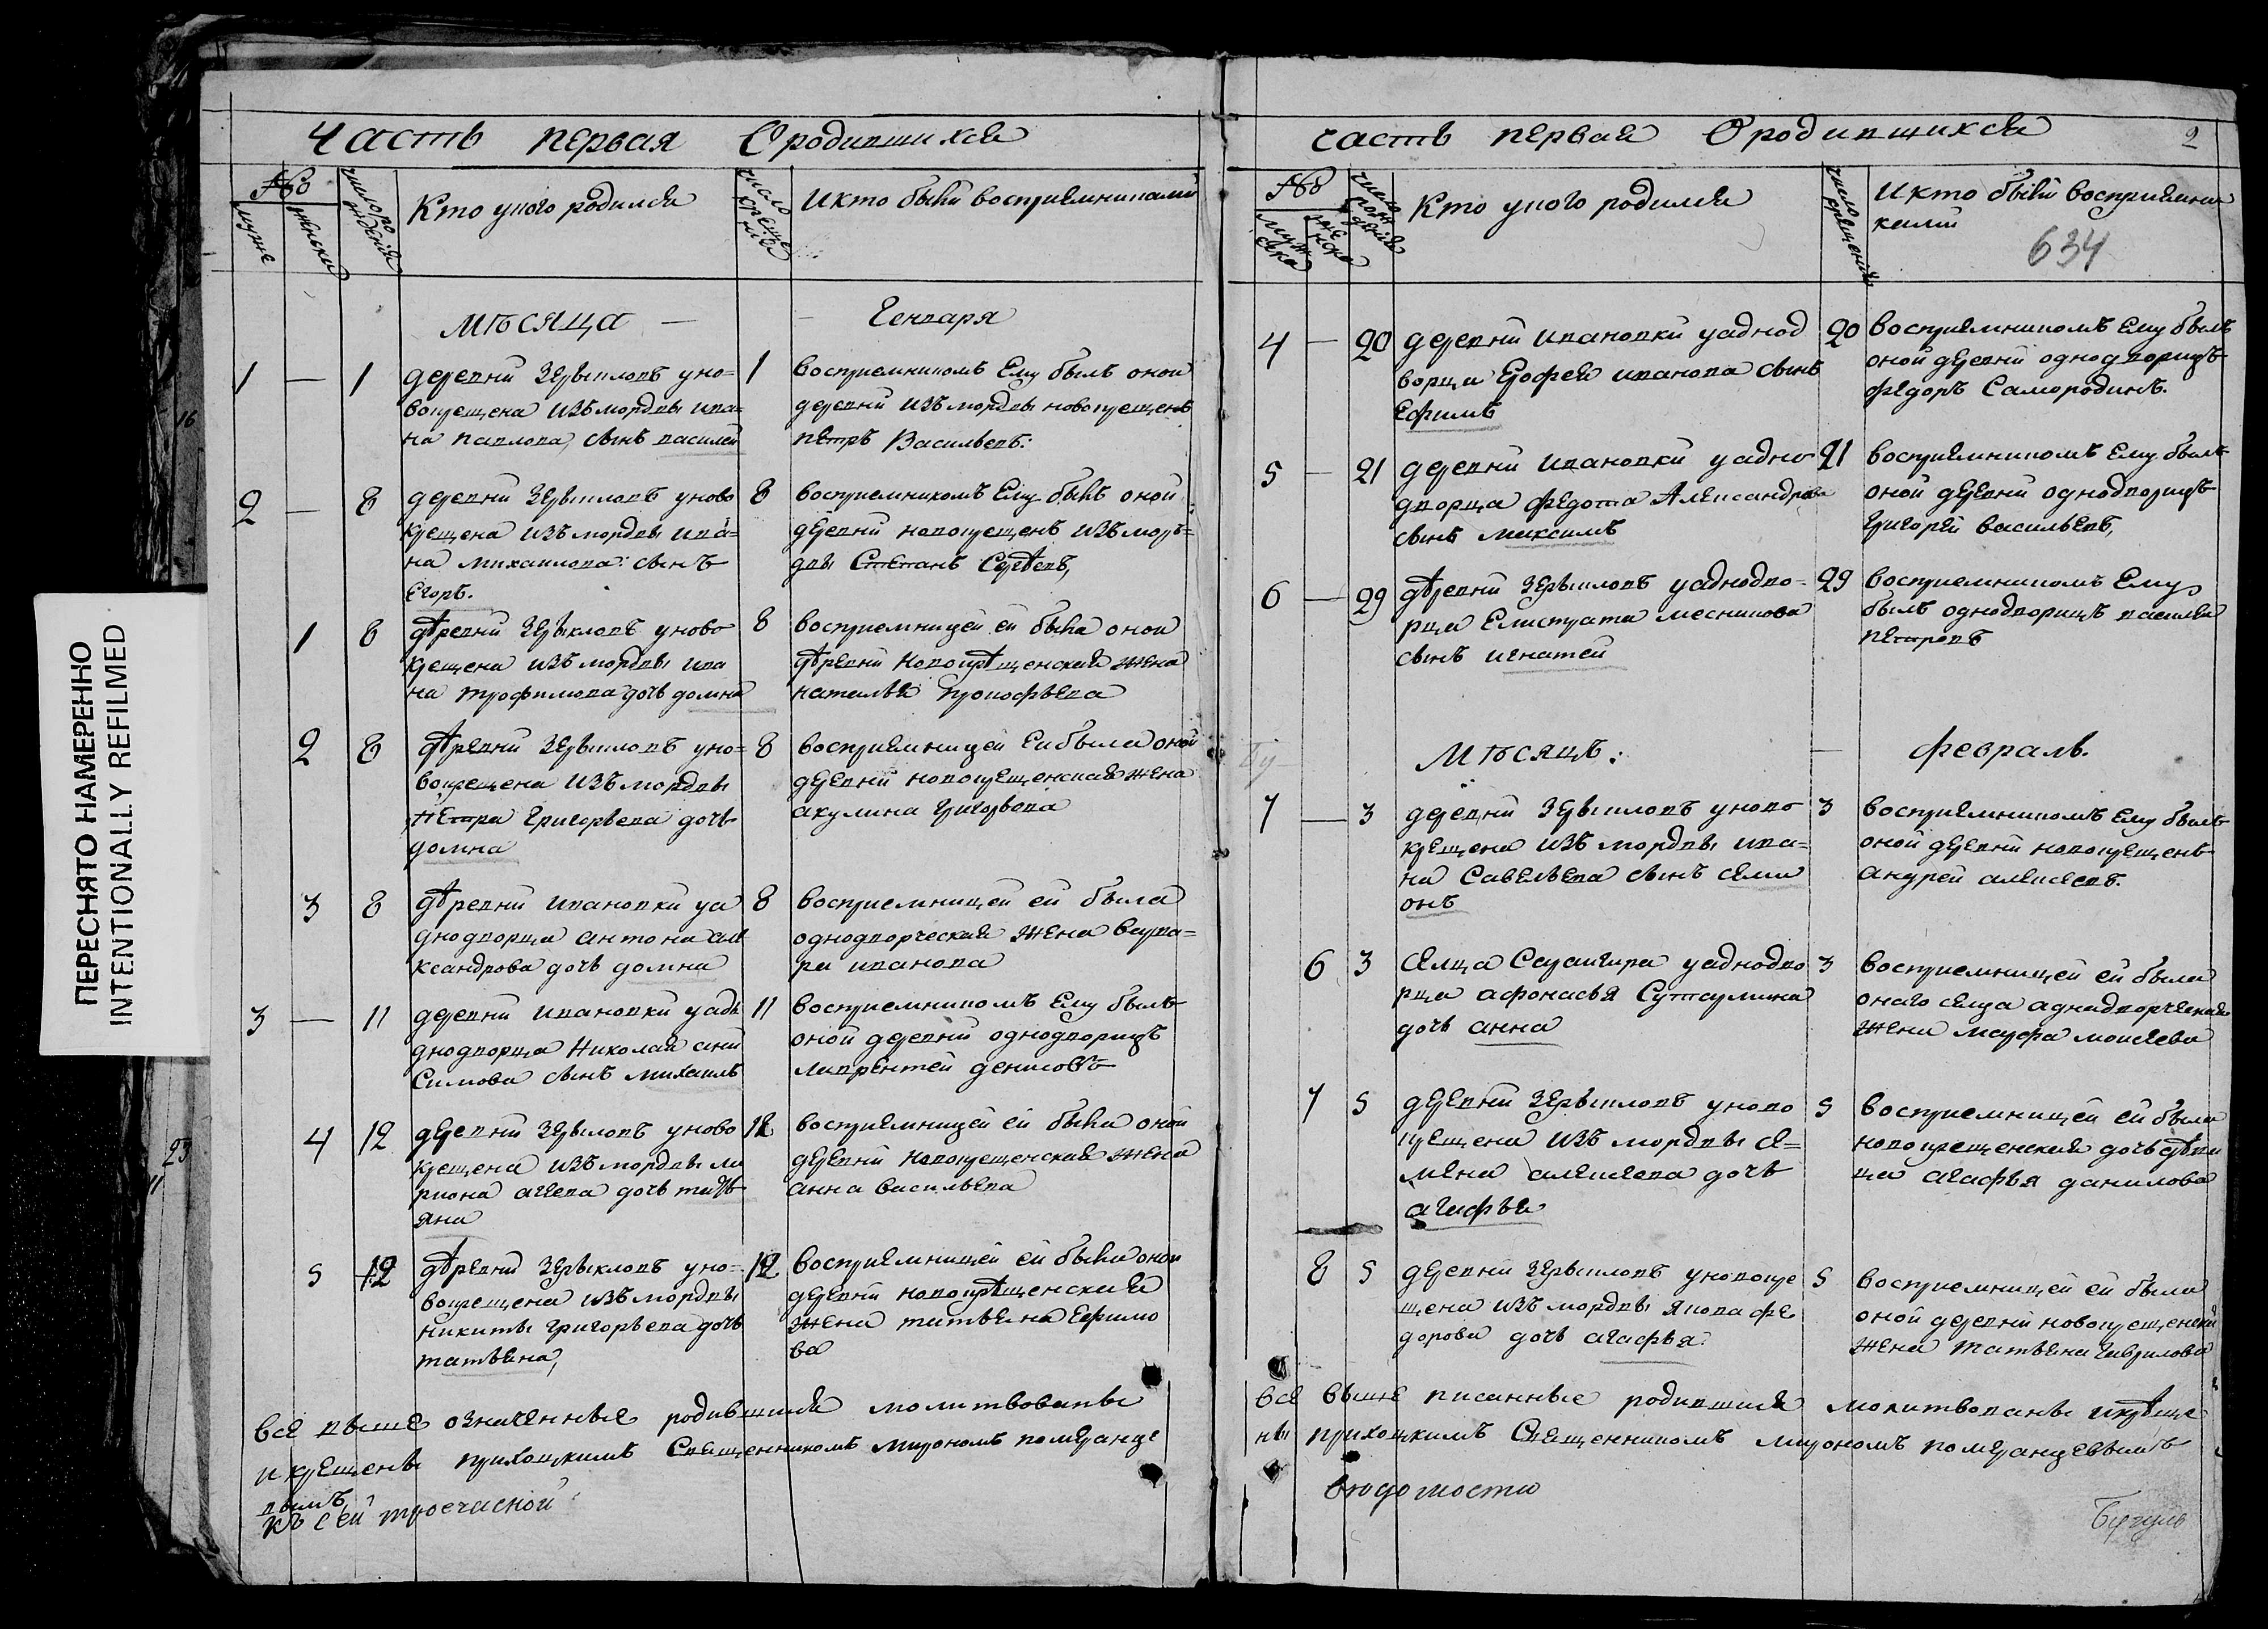 ПЕРЕСНЯТО НАМЕРЕННО
INTENTIONALLY REFILMED
16
23
Часть первая О родившихся
№
мужс
женски
число рождения
Кто у кого родился
число крещения
И кто были восприемниками
Мѣсяца — Генваря
1 — 1
деревни Зерыкловъ у но=
вокрещена изъ мордвы Ива=
на павлова, сынъ василей
1
восприемникомъ Ему былъ оной
деревни изъ мордвы новокрещенъ
петръ Васильевъ:
2 — 8
деревни Зерыкловъ у ново
крещена изъ мордвы ива=
на михаилова: сынъ
Егоръ.
8
восприемникомъ Ему былъ оной
деревни новокрещенъ изъ моръ=
двы Степанъ Сергѣевъ,
1 8
дѣревни Зерыкловъ у ново
крещена изъ мордвы ива
на трофимова дочь домна
8
восприемницей ей была оной
дѣревни новокрѣщенская жена
наталья Прокофьева
2 8
дѣревни Зерыкловъ у но=
вокрещена изъ мордвы
петра Григорьева дочь
домна
8
восприемницей Ей была оной
деревни новокрещенская жена
акулина григорьева
3 8
дѣревни ивановки у а
днодворца антона але
ксандрова дочь домна
8
восприемницей ей была
однодворческая жена варва=
ра иванова
3 — 11
деревни ивановки у адь
днодворца Николая ани
Симова сынъ михаилъ
11
восприемникомъ Ему былъ
оной деревни однодворецъ
лаврентей денисовъ
4 12
деревни Зерыловъ у ново
крещена изъ мордвы ла
риона агеева дочь тать
яна
12
восприемницей ей была оной
деревни новокрещенская жена
анна васильева
5 12
дѣревни Зерыкловъ у но=
вокрещена изъ мордвы
никиты григорьева дочь
татьяна,
12
восприемницей ей была оной
деревни новокрѣщенская
жена татьяна Ефимо
ва
все выше означенные родившияся молитвованы
и крещены приходскимъ Священникомъ мирономъ померанце
вымъ
къ сей троечасной
часть первая О родившихся
2
№
мужеска
женска
число рождения
Кто у кого родился
число крещения
И кто были восприемни
ками
634
4 — 20
деревни ивановки у аднод
ворца Ерофея иванова сынъ
Ефимъ
20
восприемникомъ Ему былъ
оной деревни однодворецъ
федоръ Самородинъ.
5 — 21
деревни ивановки у адно
дворца федота Александрова
сынъ максимъ
21
восприемникомъ Ему былъ
оной деревни однодворецъ
григорей васильевъ,
6 — 29
дѣревни Зерыкловъ у аднодво=
рца Елистрата месникова
сынъ игнатей
29
восприемникомъ Ему
былъ однодворецъ василей
петровъ
Мѣсяцъ: — февраль.
7 — 3
деревни Зерыкловъ у ново
крещена изъ мордвы ива=
на Савельева сынъ семи
онъ
3
восприемникомъ Ему былъ
оной деревни новокрещенъ
андрей алексеевъ.
6 3
Селца у аднодво
рца афонасья
дочь анна
3
восприемницей ей была
онаго селца аднадворческая
жена марфа моисеева
7 5
деревни Зерыкловъ у ново
крещена изъ мордвы се=
мена алексеева дочь
агафья
5
восприемницей ей была
новокрещенская дочь дѣви
ца агафья данилова
8 5
деревни Зерыкловъ у новокре
щена изъ мордвы якова фе
дорова дочь агафья.
5
восприемницей ей была
оной деревни новокрещенска
жена татьяна гаврилова
все выше писанные родившияся молитвованы и крѣще
ны приходскимъ Священникомъ мирономъ померанцевымъ
ведомости